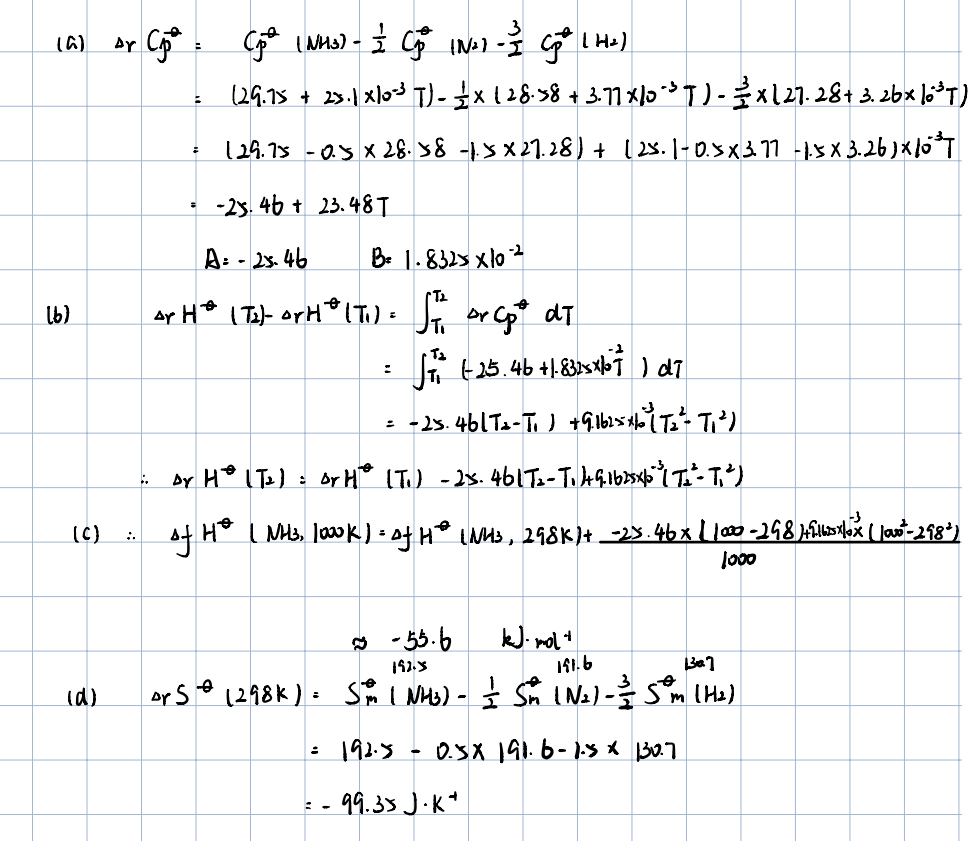 (a) Δr Cp^⊖ = Cp^⊖ (NH3) - 1/2 Cp^⊖ (N2) - 3/2 Cp^⊖ (H2)
= (29.75 + 25.1×10^-3 T) - 1/2 × (28.58 + 3.77×10^-3 T) - 3/2 × (27.28 + 3.26×10^-3 T)
= (29.75 - 0.5 × 28.58 - 1.5 × 27.28) + (25.1 - 0.5×3.77 - 1.5×3.26)×10^-3 T
= -25.46 + 23.48T
A= -25.46 B= 1.8325×10^-2
(b) Δr H^⊖ (T2) - Δr H^⊖ (T1) = ∫_T1^T2 Δr Cp^⊖ dT
= ∫_T1^T2 (-25.46 + 1.8325×10^-2 T) dT
= -25.46(T2-T1) + 9.1625×10^-3 (T2^2 - T1^2)
∴ Δr H^⊖ (T2) = Δr H^⊖ (T1) - 25.46(T2-T1)+9.1625×10^-3 (T2^2 - T1^2)
(c) ∴ Δf H^⊖ (NH3, 1000K) = Δf H^⊖ (NH3, 298K) + (-25.46 × (1000-298)+9.1625×10^-3 × (1000^2-298^2))/1000
≈ -55.6 kJ·mol^-1
192.5 191.6 130.7
(d) Δr S^⊖ (298K) = S^⊖m (NH3) - 1/2 S^⊖m (N2) - 3/2 S^⊖m (H2)
= 192.5 - 0.5× 191.6 - 1.5 × 130.7
= -99.35 J·K^-1